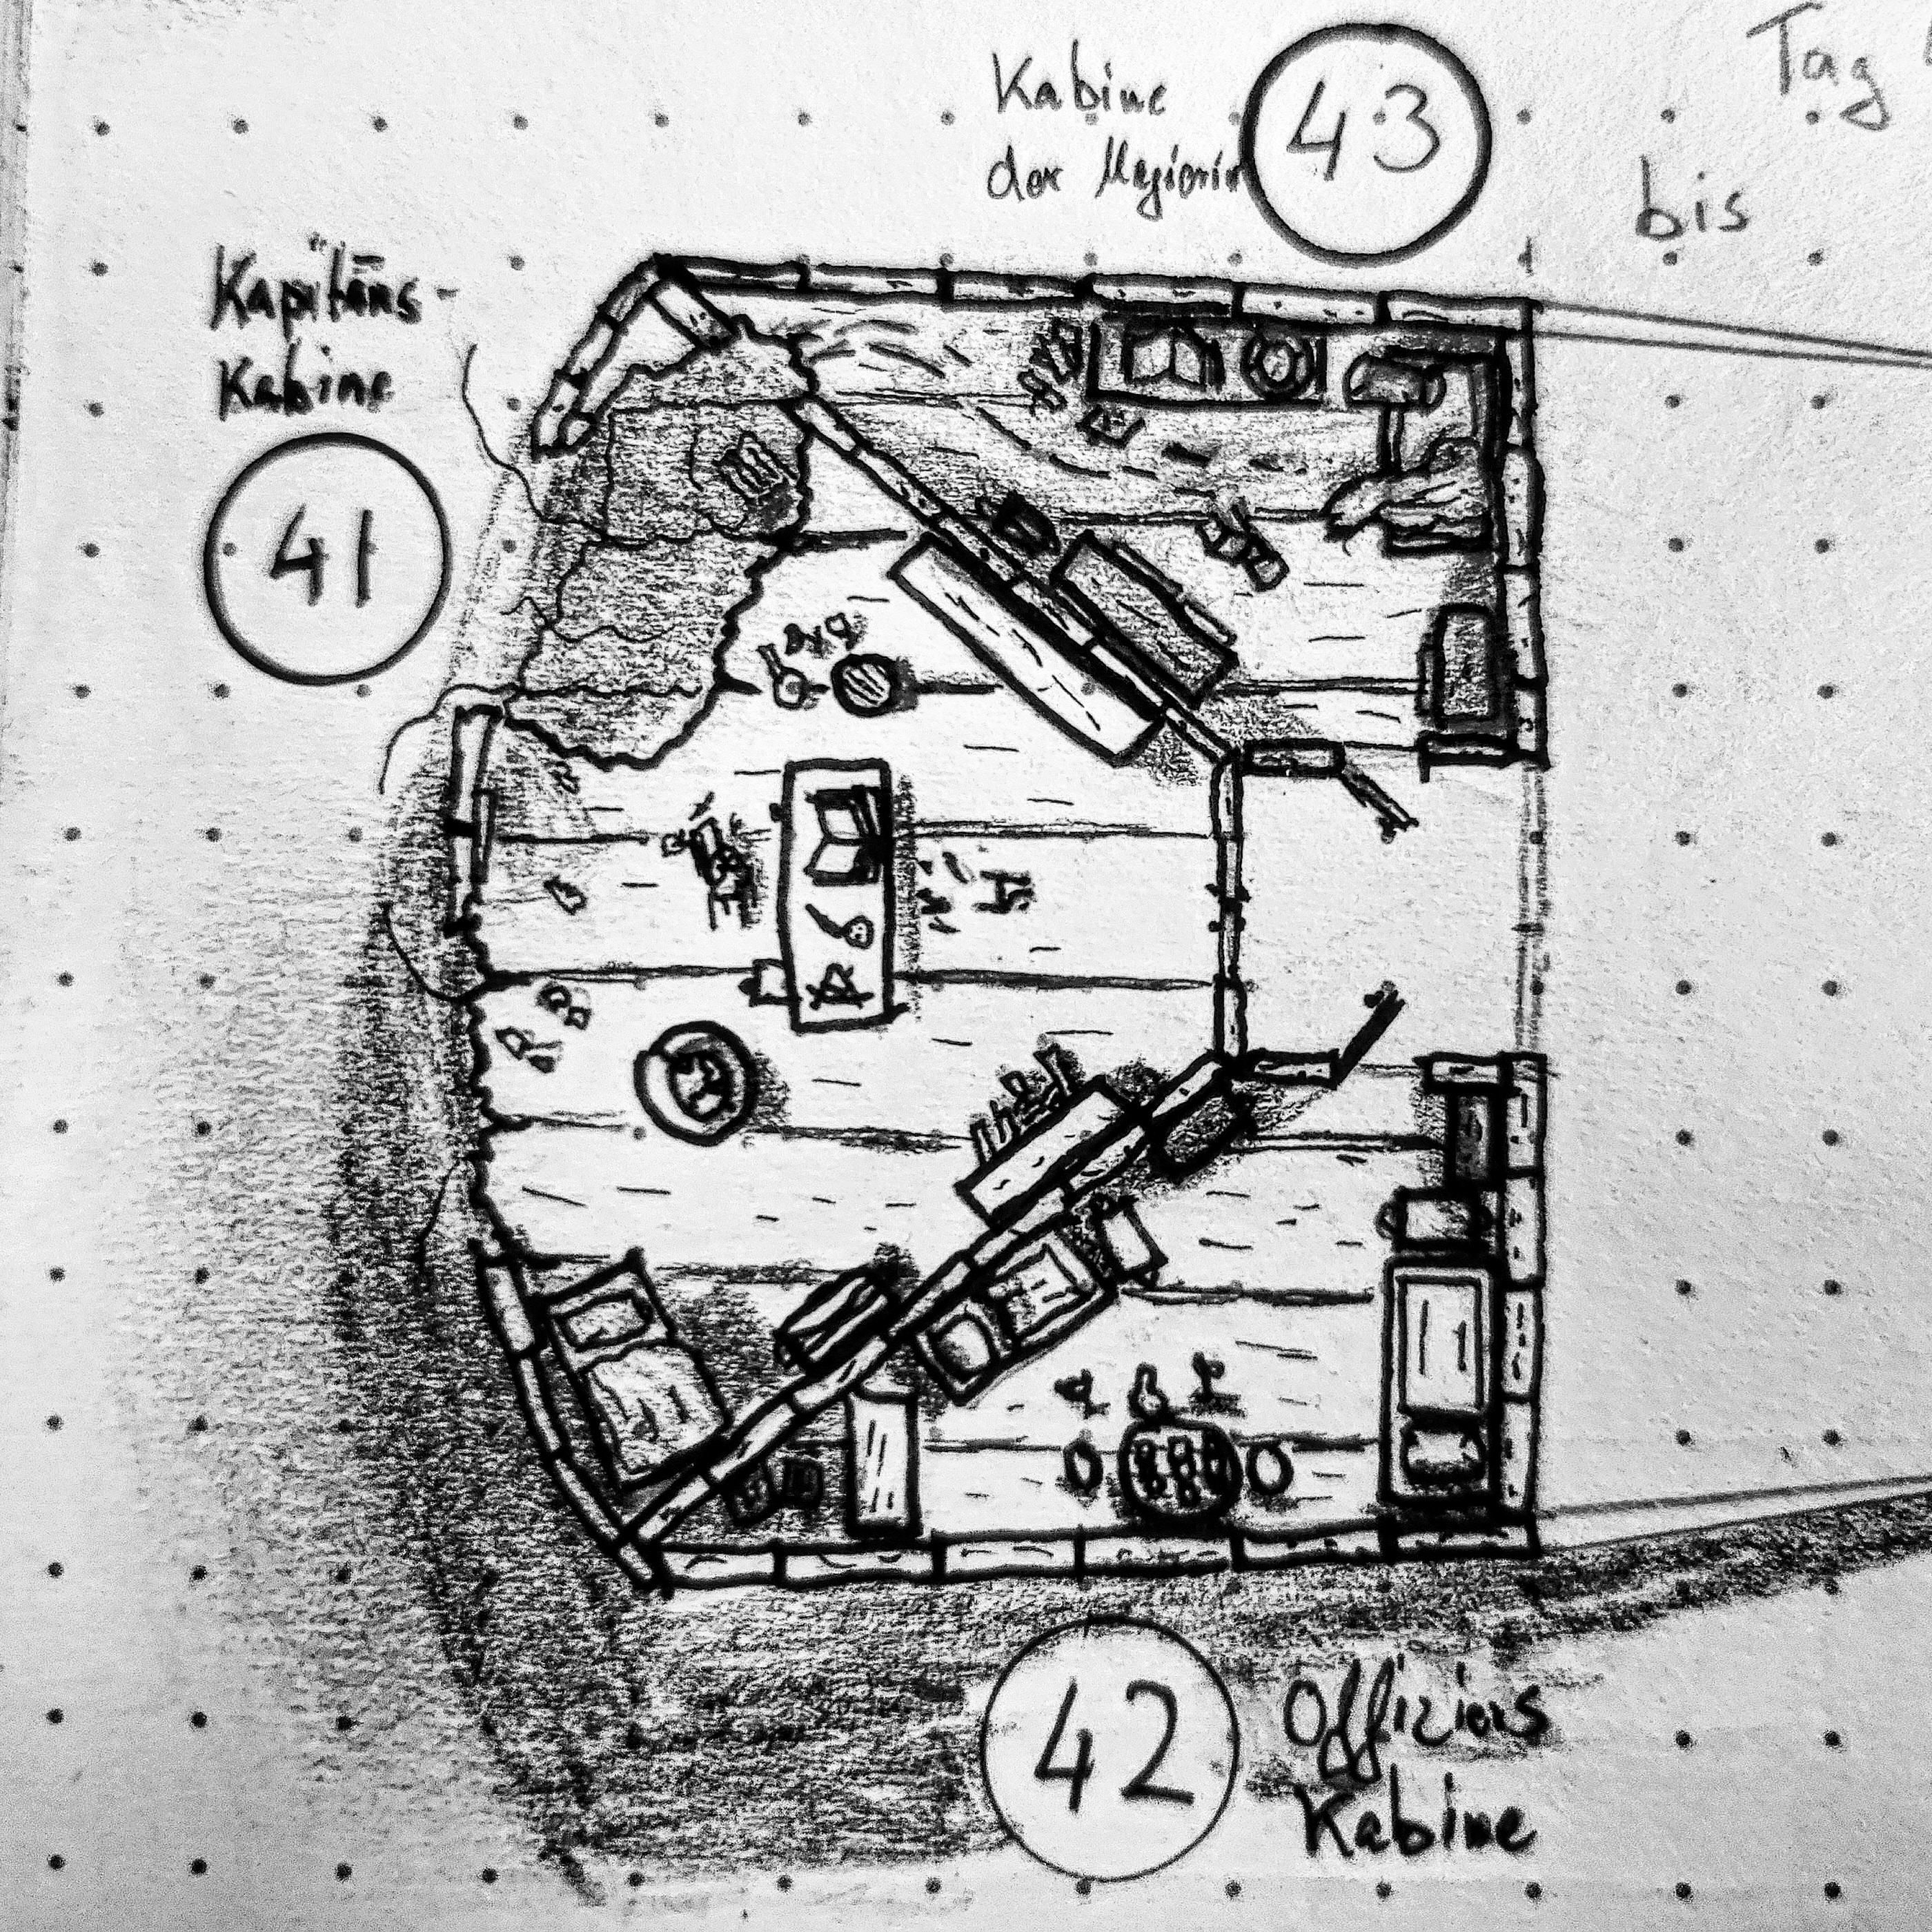 Tag
bis
Kabine
der Magierin
43
Kapitäns-
Kabine
41
42
Offiziers
Kabine